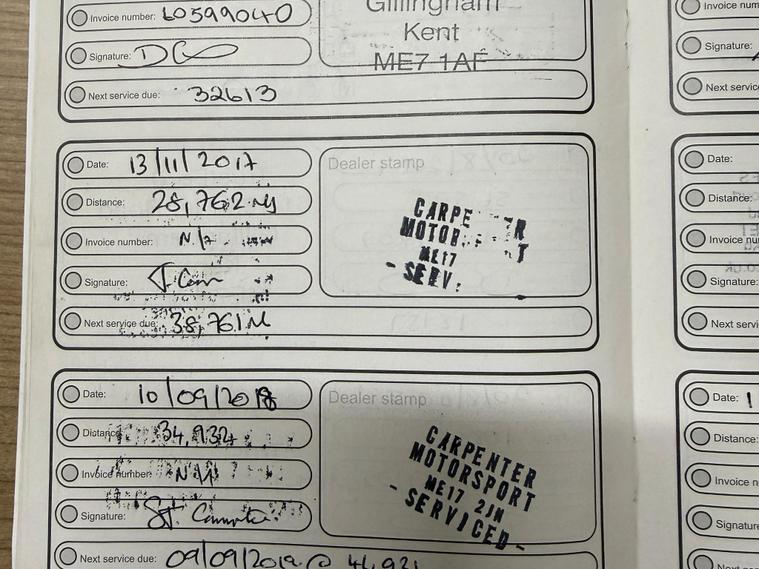 Invoice number: 60599040
Gillingham
Kent
ME7 1AF
Signature:
Next service due: 32613
Date: 13/11/2017
Dealer stamp
Distance: 28,762
Invoice number: N/A
CARPE
MOTOR
ME17
- SERV
Signature:
Next service due: 38,761 M
Date: 10/09/2018
Dealer stamp
Distance: 34,932
Invoice number: N/A
CARPENTER
MOTORSPORT
ME17 2JN
- SERVICED -
Signature:
Next service due: 09/09/2019 @ 44,931
Invoice num
Signature:
Next service
Date:
Distance:
Invoice nu
Signature:
Next servi
Date: 1
Distance:
Invoice n
Signature
Next